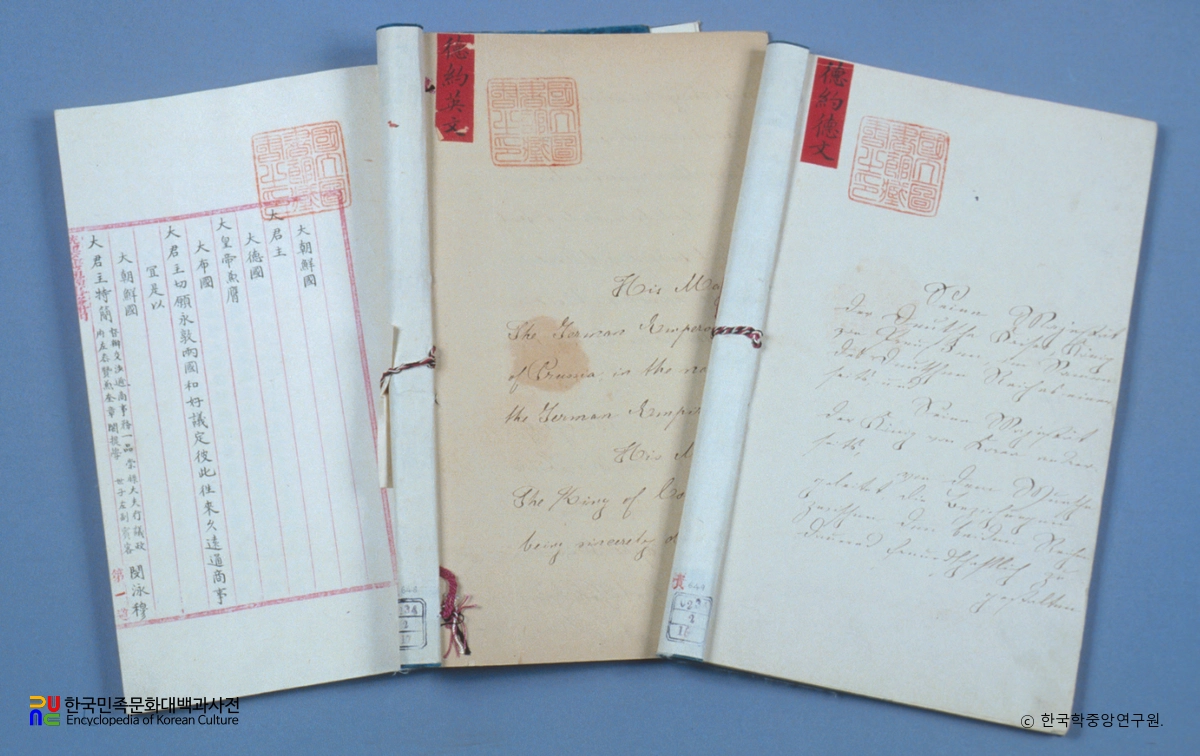 大朝鮮國
大君主
大德國
大皇帝兼膺
大布國
大君主切願永敦兩國和好議定彼此往來久遠通商事
宜是以
大朝鮮國
大君主特簡
督辦交涉通商事務一品崇祿大夫行議政
府左參贊兼奎章閣提學世子左副賓客
閔泳穆
第一道
德約英文
國立圖
書館藏
書之印
His Maj
The German Emperor
of Prussia, in the na
the German Empi
His M
The King of Co
being sincerely
德約德文
國立圖
書館藏
書之印
Seine Majestät
der Deutsche Kaiser, König
von Preußen im Namen
des Deutschen Reichs einer
seits und
Seine Majestät
der König von Korea
seits,
von dem Wunsche
geleitet die Beziehungen
zwischen den beiden Reichen
dauernd freundschaftlich zu
gestalten
한국민족문화대백과사전
Encyclopedia of Korean Culture
ⓒ 한국학중앙연구원.